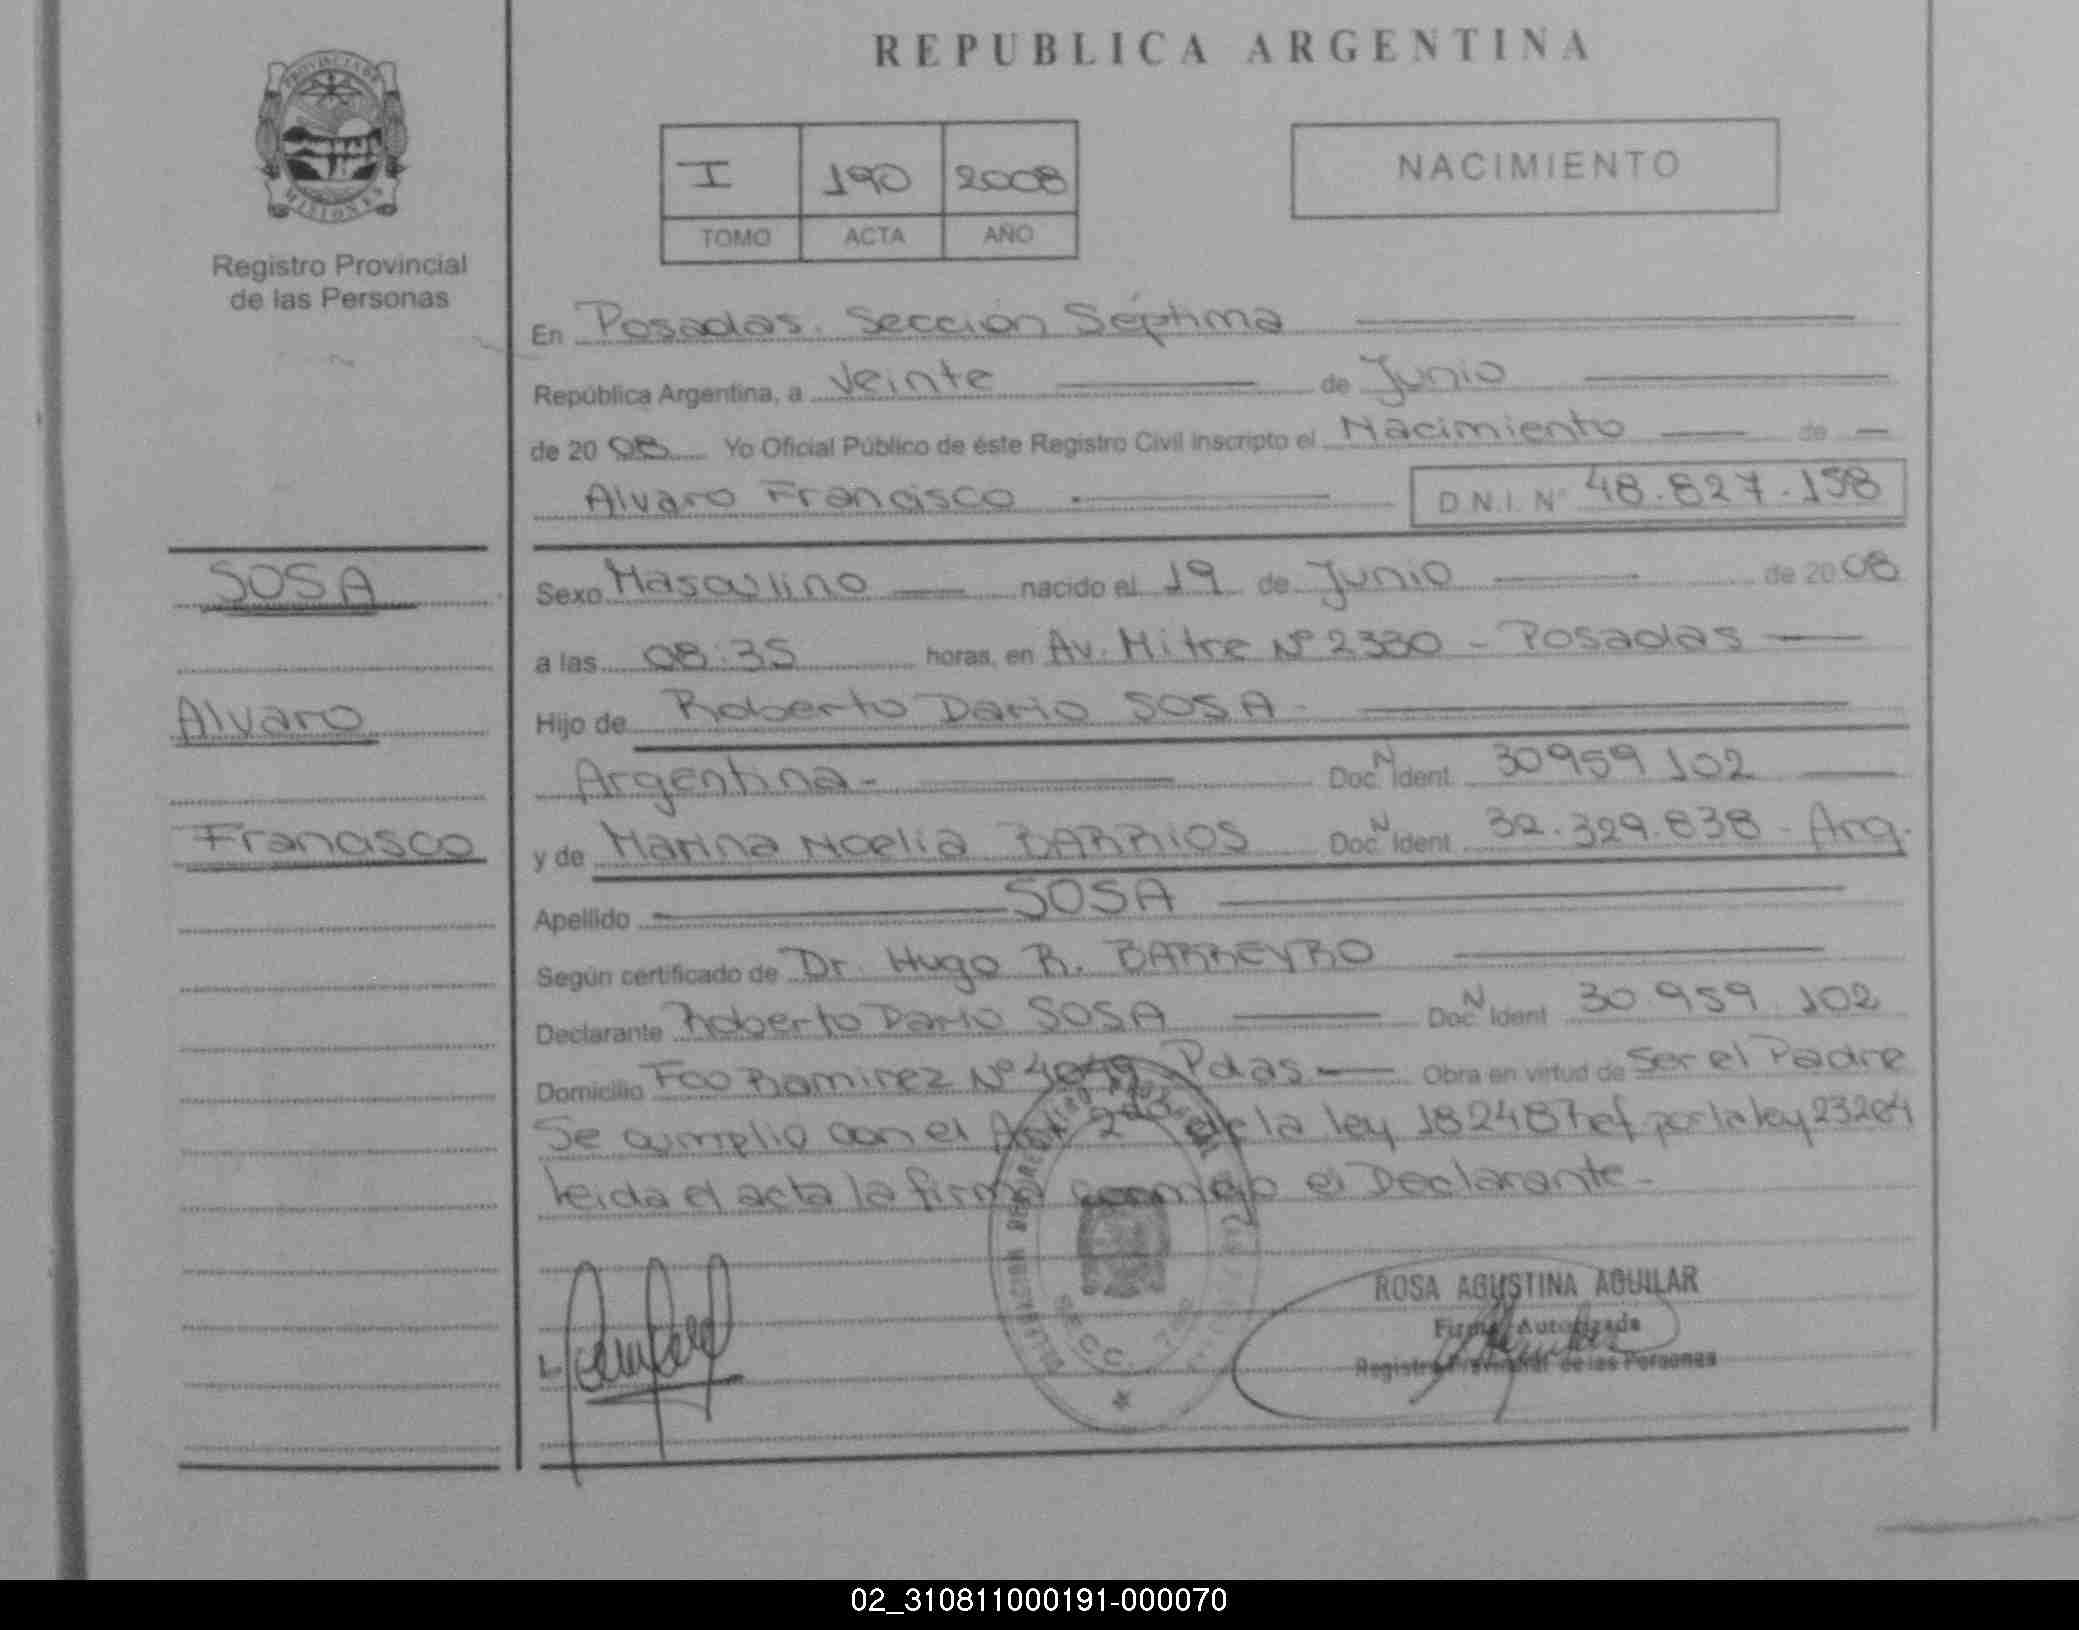 REPUBLICA ARGENTINA
PROVINCIA DE
MISIONES
Registro Provincial
de las Personas
I 190 2008
TOMO ACTA AÑO
NACIMIENTO
En Posadas. Sección Séptima
República Argentina, a Veinte de Junio
de 2008 Yo Oficial Público de éste Registro Civil inscripto el Nacimiento de
Alvaro Francisco D.N.I. Nº 48.827.158
SOSA
Alvaro
Francisco
Sexo Masculino nacido el 19 de Junio de 2008
a las 08:35 horas, en Av. Mitre Nº 2330 - Posadas
Hijo de Roberto Dario SOSA
Argentina - Doc. N Ident 30959 102
y de Marina Noelia BARRIOS Doc. N Ident 32.329.838 - Arg.
Apellido SOSA
Según certificado de Dr. Hugo R. BARREYRO
Declarante Roberto Dario SOSA Doc. N Ident 30 959 102
Domicilio Fco Ramirez Nº Pdas Obra en virtud de Ser el Padre
Se cumplio con el Art 2do de la ley 18248 ref por la ley 23264
leida el acta la firma conmigo el Declarante.
SECC. 7
ROSA AGUSTINA AGUILAR
Firma Autorizada
Registro Provincial de las Personas
02_310811000191-000070